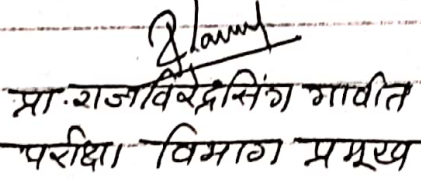 प्रा. राजविरेंद्रसिंग गावीत
परीक्षा विभाग प्रमुख